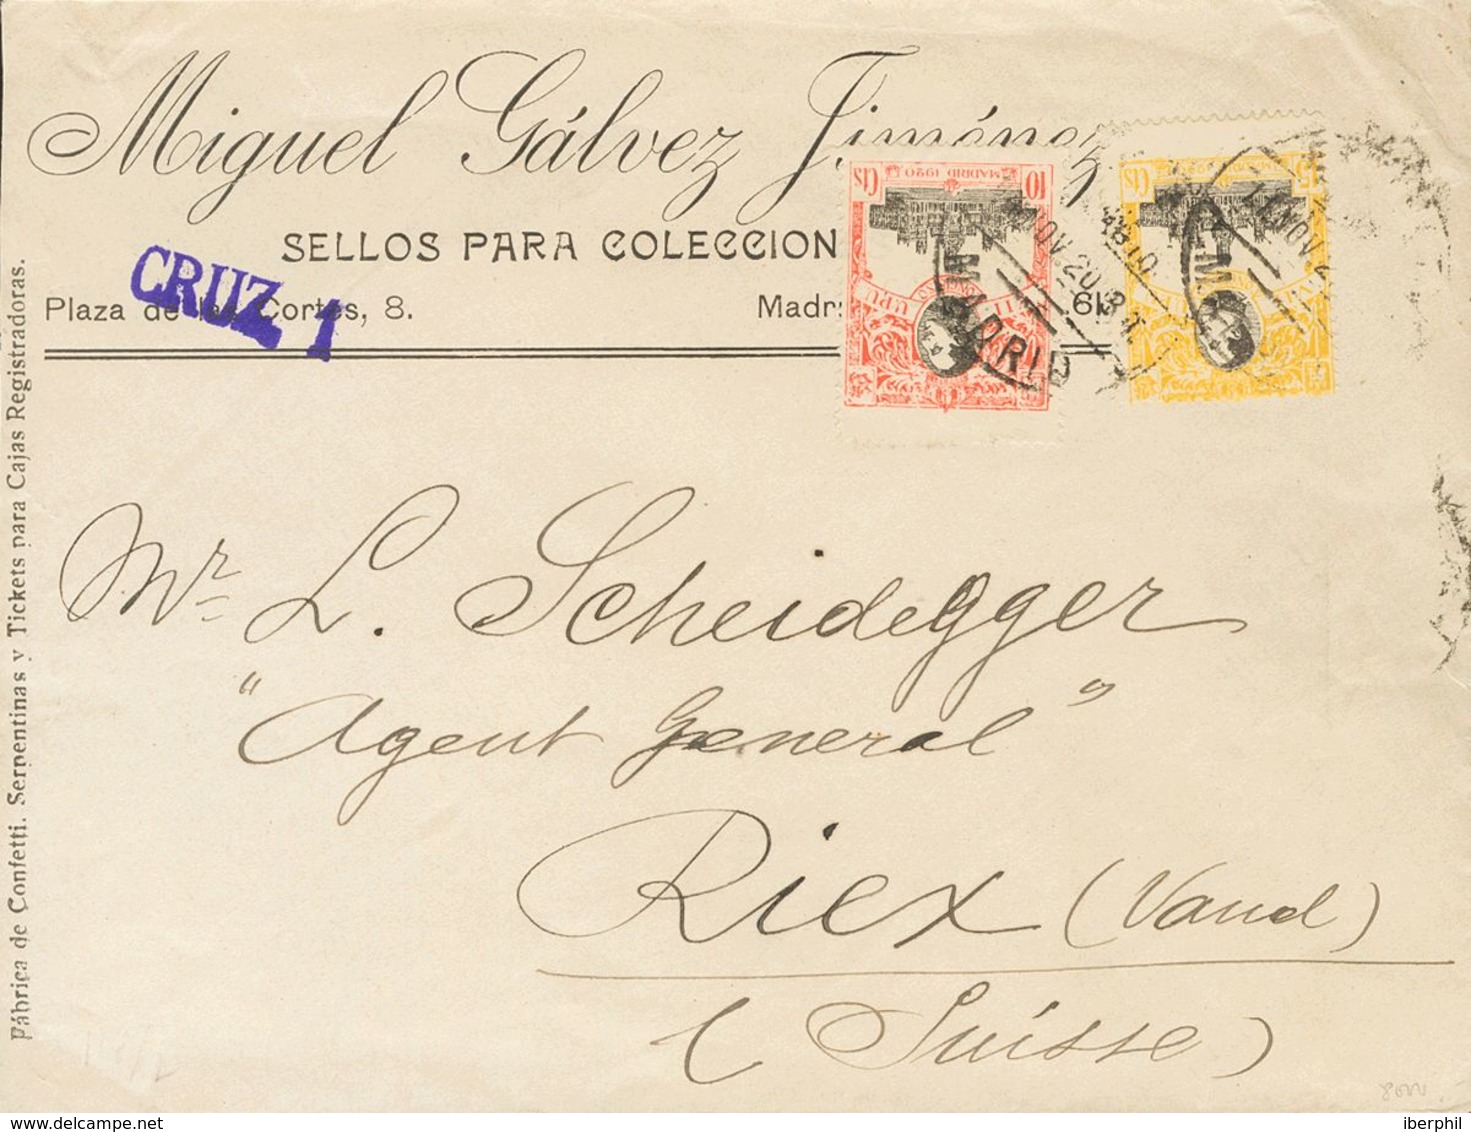 Miguel Gálvez Jiménez
SELLOS PARA COLECCION
CRUZ 1
Plaza de las Cortes, 8.
Madr
191
10 Cts
MADRID 1920
Cts
U.P.U.
15 Cts
MADRID
NOV 20
Fábrica de Confetti. Serpentinas y Tickets para Cajas Registradoras.
Mr. L. Scheidegger
"Agent General"
Riex (Vaud)
(Suisse)
iberphil